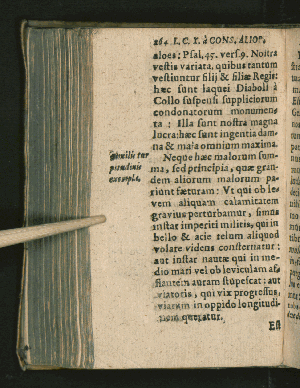 264 I. C. T. à CONS. ALIOR.
aloes: Psal. 45. vers. 9. Nostra
vestis variata, quibus tantum
vestiuntur filij & filiæ Regis:
hæc sunt laquei Diaboli à
Collo suspensi suppliciorum
condonatorum monumen
ta; Illa sunt nostra magna
lucra: hæc sunt ingentia dam
na & mala omnium maxima.
Neque hæc malorum sum-
ma, sed principia, quæ gran-
dem aliorum malorum pa-
riunt fæturam: Ut qui ob le-
vem aliquam calamitatem
gravius perturbamur, simus
instar imperiti militis, qui in
bello & acie telum aliquod
volare videns consternatur:
aut instar nautæ qui in me-
dio mari vel ob leviculam af-
flantem auram stupescat: aut
viatoris, qui vix progressus,
viarum in oppido longitudi-
nem queratur.
Est
Similis tur
pitudinis
exempla.